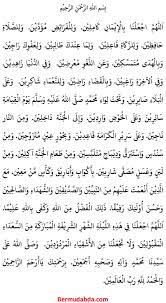 بِسْمِ اللهِ الرَّحْمٰنِ الرَّحِيْمِ
اَللّٰهُمَّ اجْعَلْنَا بِالْإِيْمَانِ كَامِلِيْنَ، وَلِلْفَرَائِضِ مُؤَدِّيْنَ، وَلِلصَّلَاةِ
حَافِظِيْنَ، وَلِلزَّكَاةِ فَاعِلِيْنَ، وَلِمَا عِنْدَكَ طَالِبِيْنَ، وَلِعَفْوِكَ رَاجِيْنَ،
وَبِالْهُدَى مُتَمَسِّكِيْنَ، وَعَنِ اللَّغْوِ مُعْرِضِيْنَ، وَفِي الدُّنْيَا زَاهِدِيْنَ،
وَفِي الْآخِرَةِ رَاغِبِيْنَ، وَبِالْقَضَاءِ رَاضِيْنَ، وَلِلنَّعْمَاءِ شَاكِرِيْنَ، وَعَلَى
الْبَلَاءِ صَابِرِيْنَ، وَتَحْتَ لِوَاءِ مُحَمَّدٍ صَلَّى اللهُ عَلَيْهِ وَسَلَّمَ يَوْمَ الْقِيَامَةِ
سَائِرِيْنَ، وَإِلَى الْحَوْضِ وَارِدِيْنَ، وَإِلَى الْجَنَّةِ دَاخِلِيْنَ، وَمِنَ النَّارِ
نَاجِيْنَ، وَعَلَى سَرِيْرِ الْكَرَامَةِ قَاعِدِيْنَ، وَبِحُوْرٍ عِيْنٍ مُتَزَوِّجِيْنَ، وَمِنْ
سُنْدُسٍ وَاِسْتَبْرَقٍ وَدِيْبَاجٍ مُتَلَبِّسِيْنَ، وَمِنْ طَعَامِ الْجَنَّةِ آكِلِيْنَ،
وَمِنْ لَبَنٍ وَعَسَلٍ مُصَفًّى شَارِبِيْنَ، بِأَكْوَابٍ وَأَبَارِيْقَ وَكَأْسٍ مِنْ مَعِيْنٍ،
مَعَ الَّذِيْنَ أَنْعَمْتَ عَلَيْهِمْ مِنَ النَّبِيِّيْنَ وَالصِّدِّيْقِيْنَ وَالشُّهَدَاءِ وَالصَّالِحِيْنَ،
وَحَسُنَ أُولٰئِكَ رَفِيْقًا، ذٰلِكَ الْفَضْلُ مِنَ اللهِ، وَكَفَى بِاللهِ عَلِيْمًا،
اَللّٰهُمَّ اجْعَلْنَا فِي هٰذِهِ اللَّيْلَةِ
وَالْحَمْدُ لِلّٰهِ رَبِّ الْعَالَمِيْنَ.
Bermudabda.com